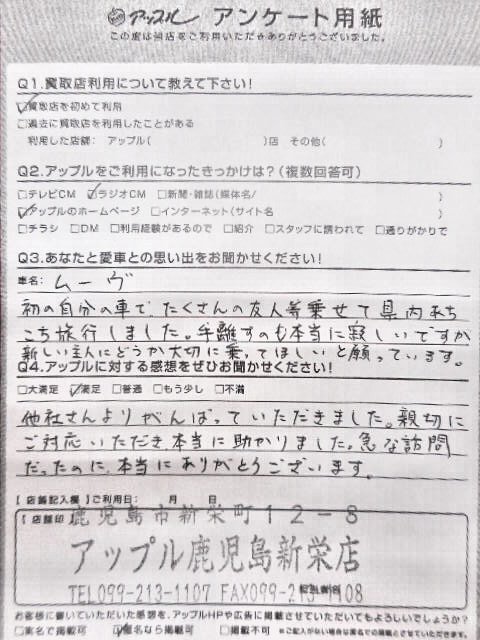 アップル アンケート用紙
この度は当店をご利用いただきありがとうございました。
Q1.買取店利用について教えて下さい!
買取店を初めて利用
□過去に買取店を利用したことがある
利用した店舗: アップル( )店 その他( )
Q2.アップルをご利用になったきっかけは?(複数回答可)
□テレビCM ☑ラジオCM □新聞・雑誌(媒体名/ )
☑アップルのホームページ □インターネット(サイト名 )
□チラシ □DM □利用経験があるので □紹介 □スタッフに誘われて □通りがかりで
Q3.あなたと愛車との思い出をお聞かせください!
車名: ムーヴ
初の自分の車で、たくさんの友人等乗せて県内あち
こち旅行しました。手離すのも本当に寂しいですが
新しい主人にどうか大切に乗ってほしいと願っています。
Q4.アップルに対する感想をぜひお聞かせください!
□大満足 ☑満足 □普通 □もう少し □不満
他社さんよりがんばっていただきました。親切に
ご対応いただき本当に助かりました。急な訪問
だったのに、本当にありがとうございます。
【店舗記入欄】ご利用日: 月 日
【店舗印】鹿児島市新栄町12-8
アップル鹿児島新栄店
TEL099-213-1107 FAX099-213-1108
お客様に書いていただいた感想を、アップルHPや広告に掲載させていただいてもよろしいでしょうか?
□実名で掲載可 ☑匿名なら掲載可 □掲載不可 ※ご記入がない場合は匿名で掲載とさせていただきます。